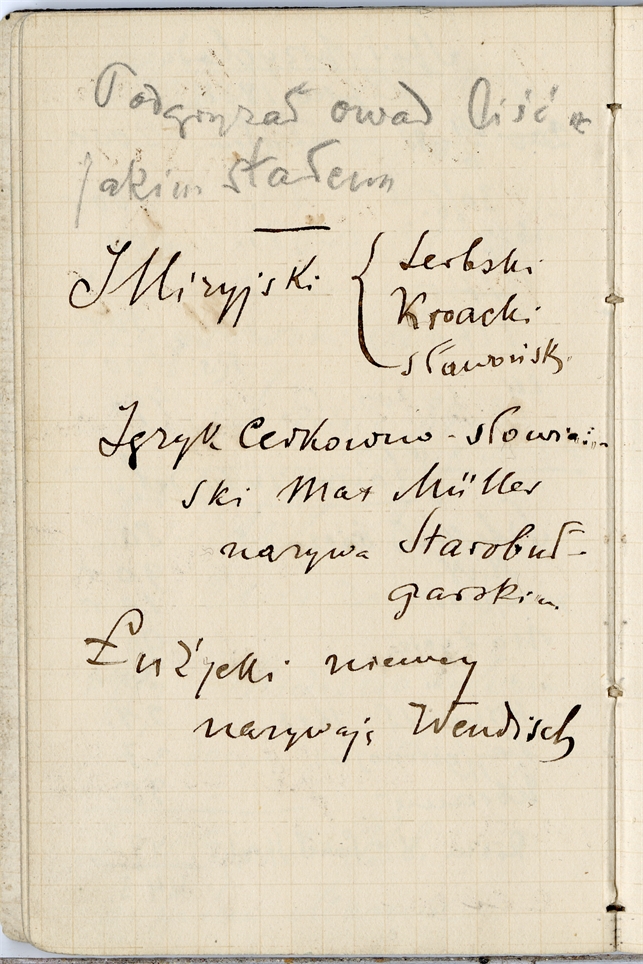 Podgryzał owad liść z
jakim stałem
Illiryjski { Serbski
Kroacki
sławoński
Język Cerkowno-słowiań-
ski Max Müller
nazywa Starobuł-
garskim
Łużycki niemcy
nazywają Wendisch